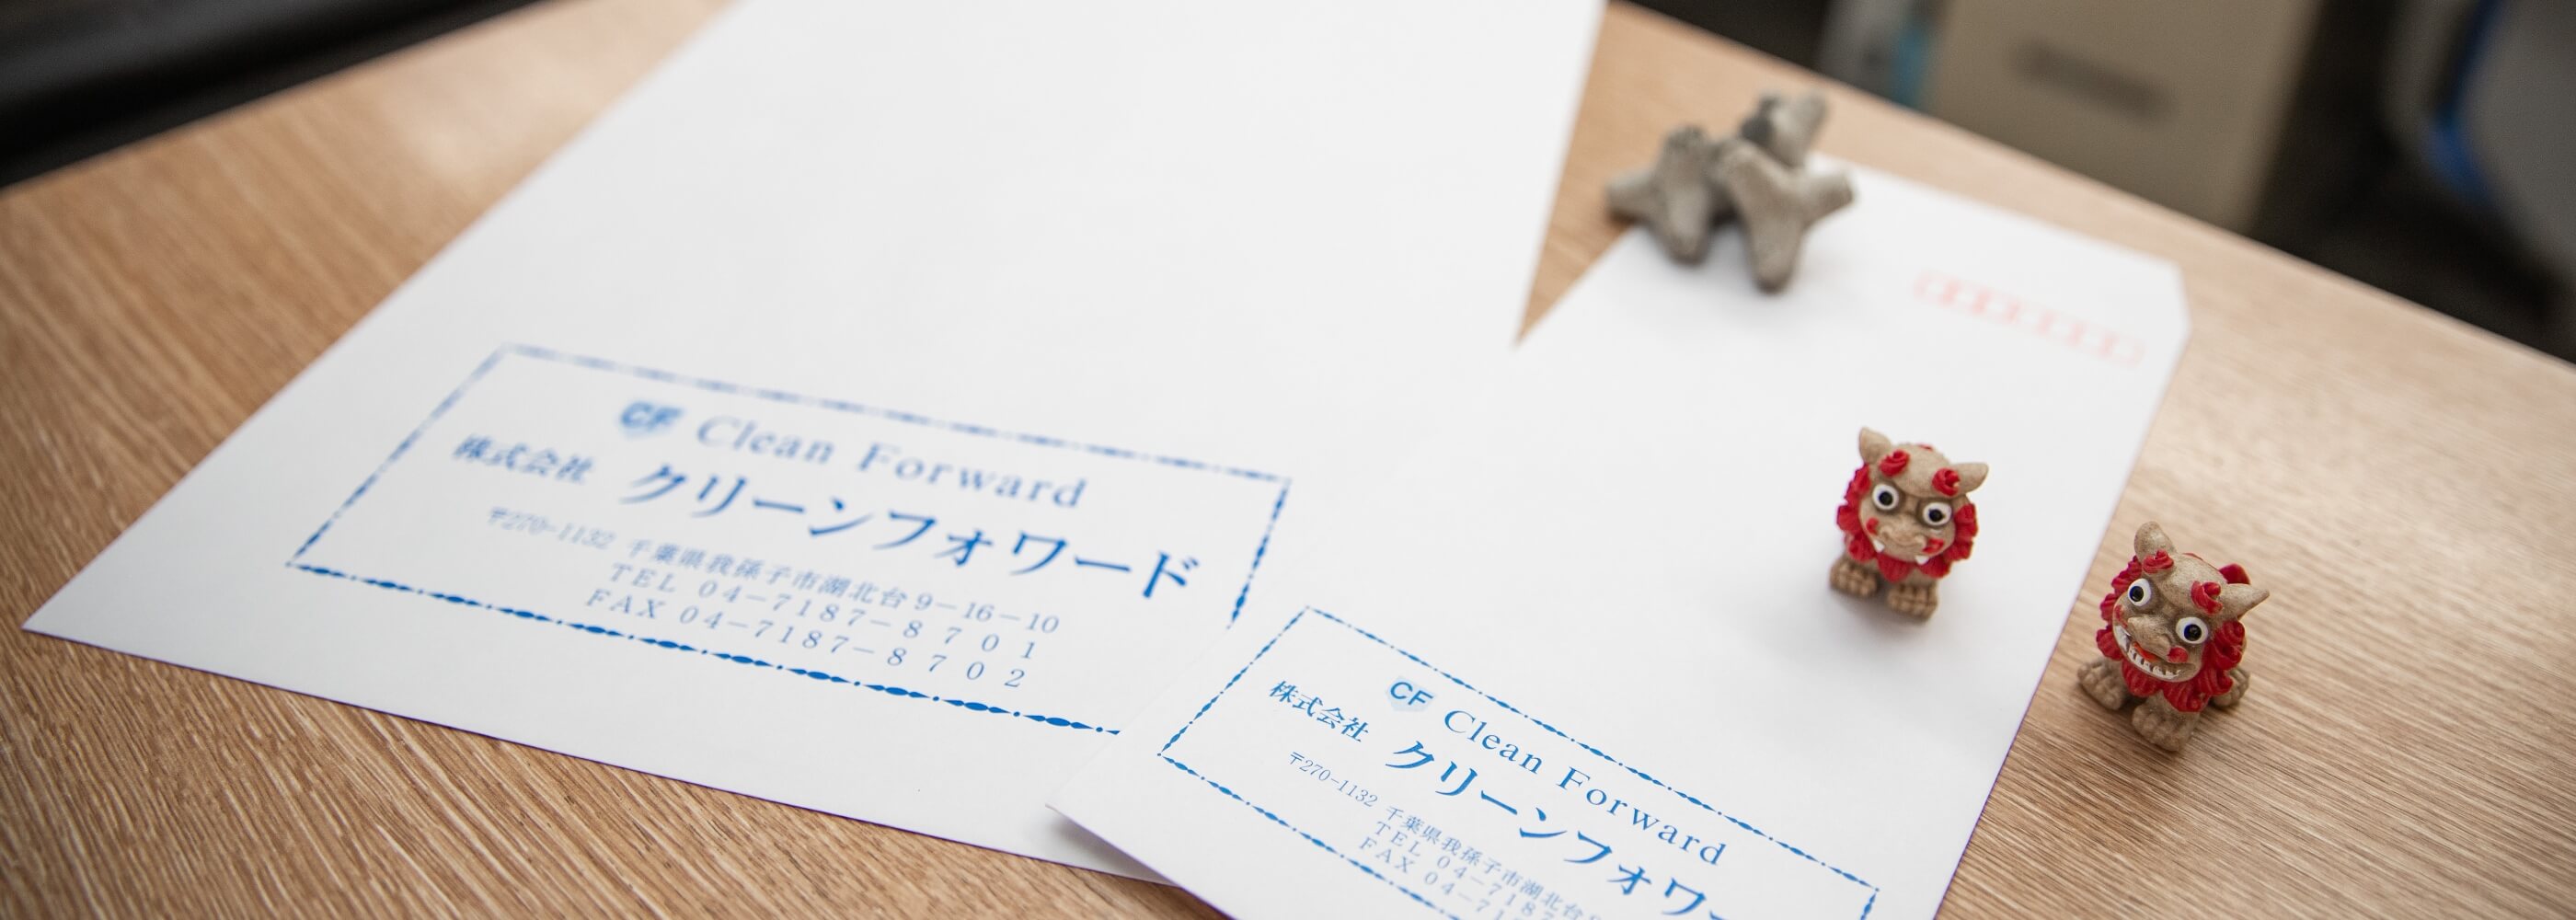 CF Clean Forward
株式会社 クリーンフォワード
〒270-1132 千葉県我孫子市湖北台9-16-10
TEL 04-7187-8701
FAX 04-7187-8702
CF Clean Forward
株式会社 クリーンフォワー
〒270-1132 千葉県我孫子市湖北台9
TEL 04-7187
FAX 04-71